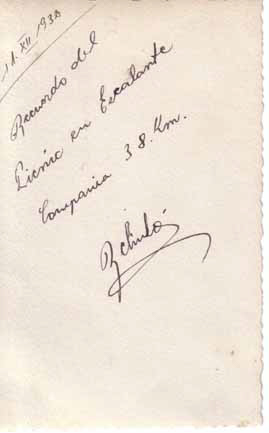 11. XII 1938
Recuerdo del
Picnic en Escalante
Compania 38. Km.